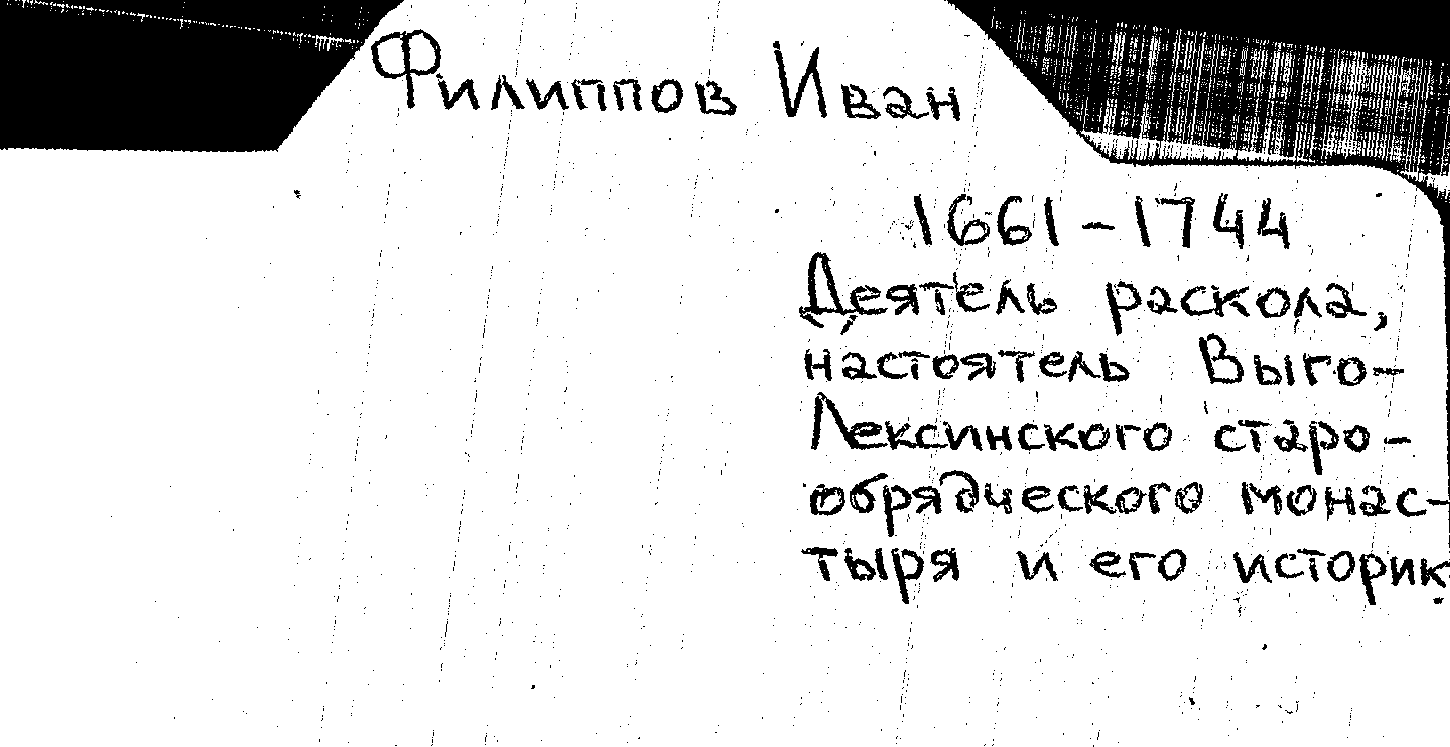 Филиппов Иван
1661-1744
Деятель раскола,
настоятель Выго-
Лексинского старо-
обрядческого монас-
тыря и его историк.